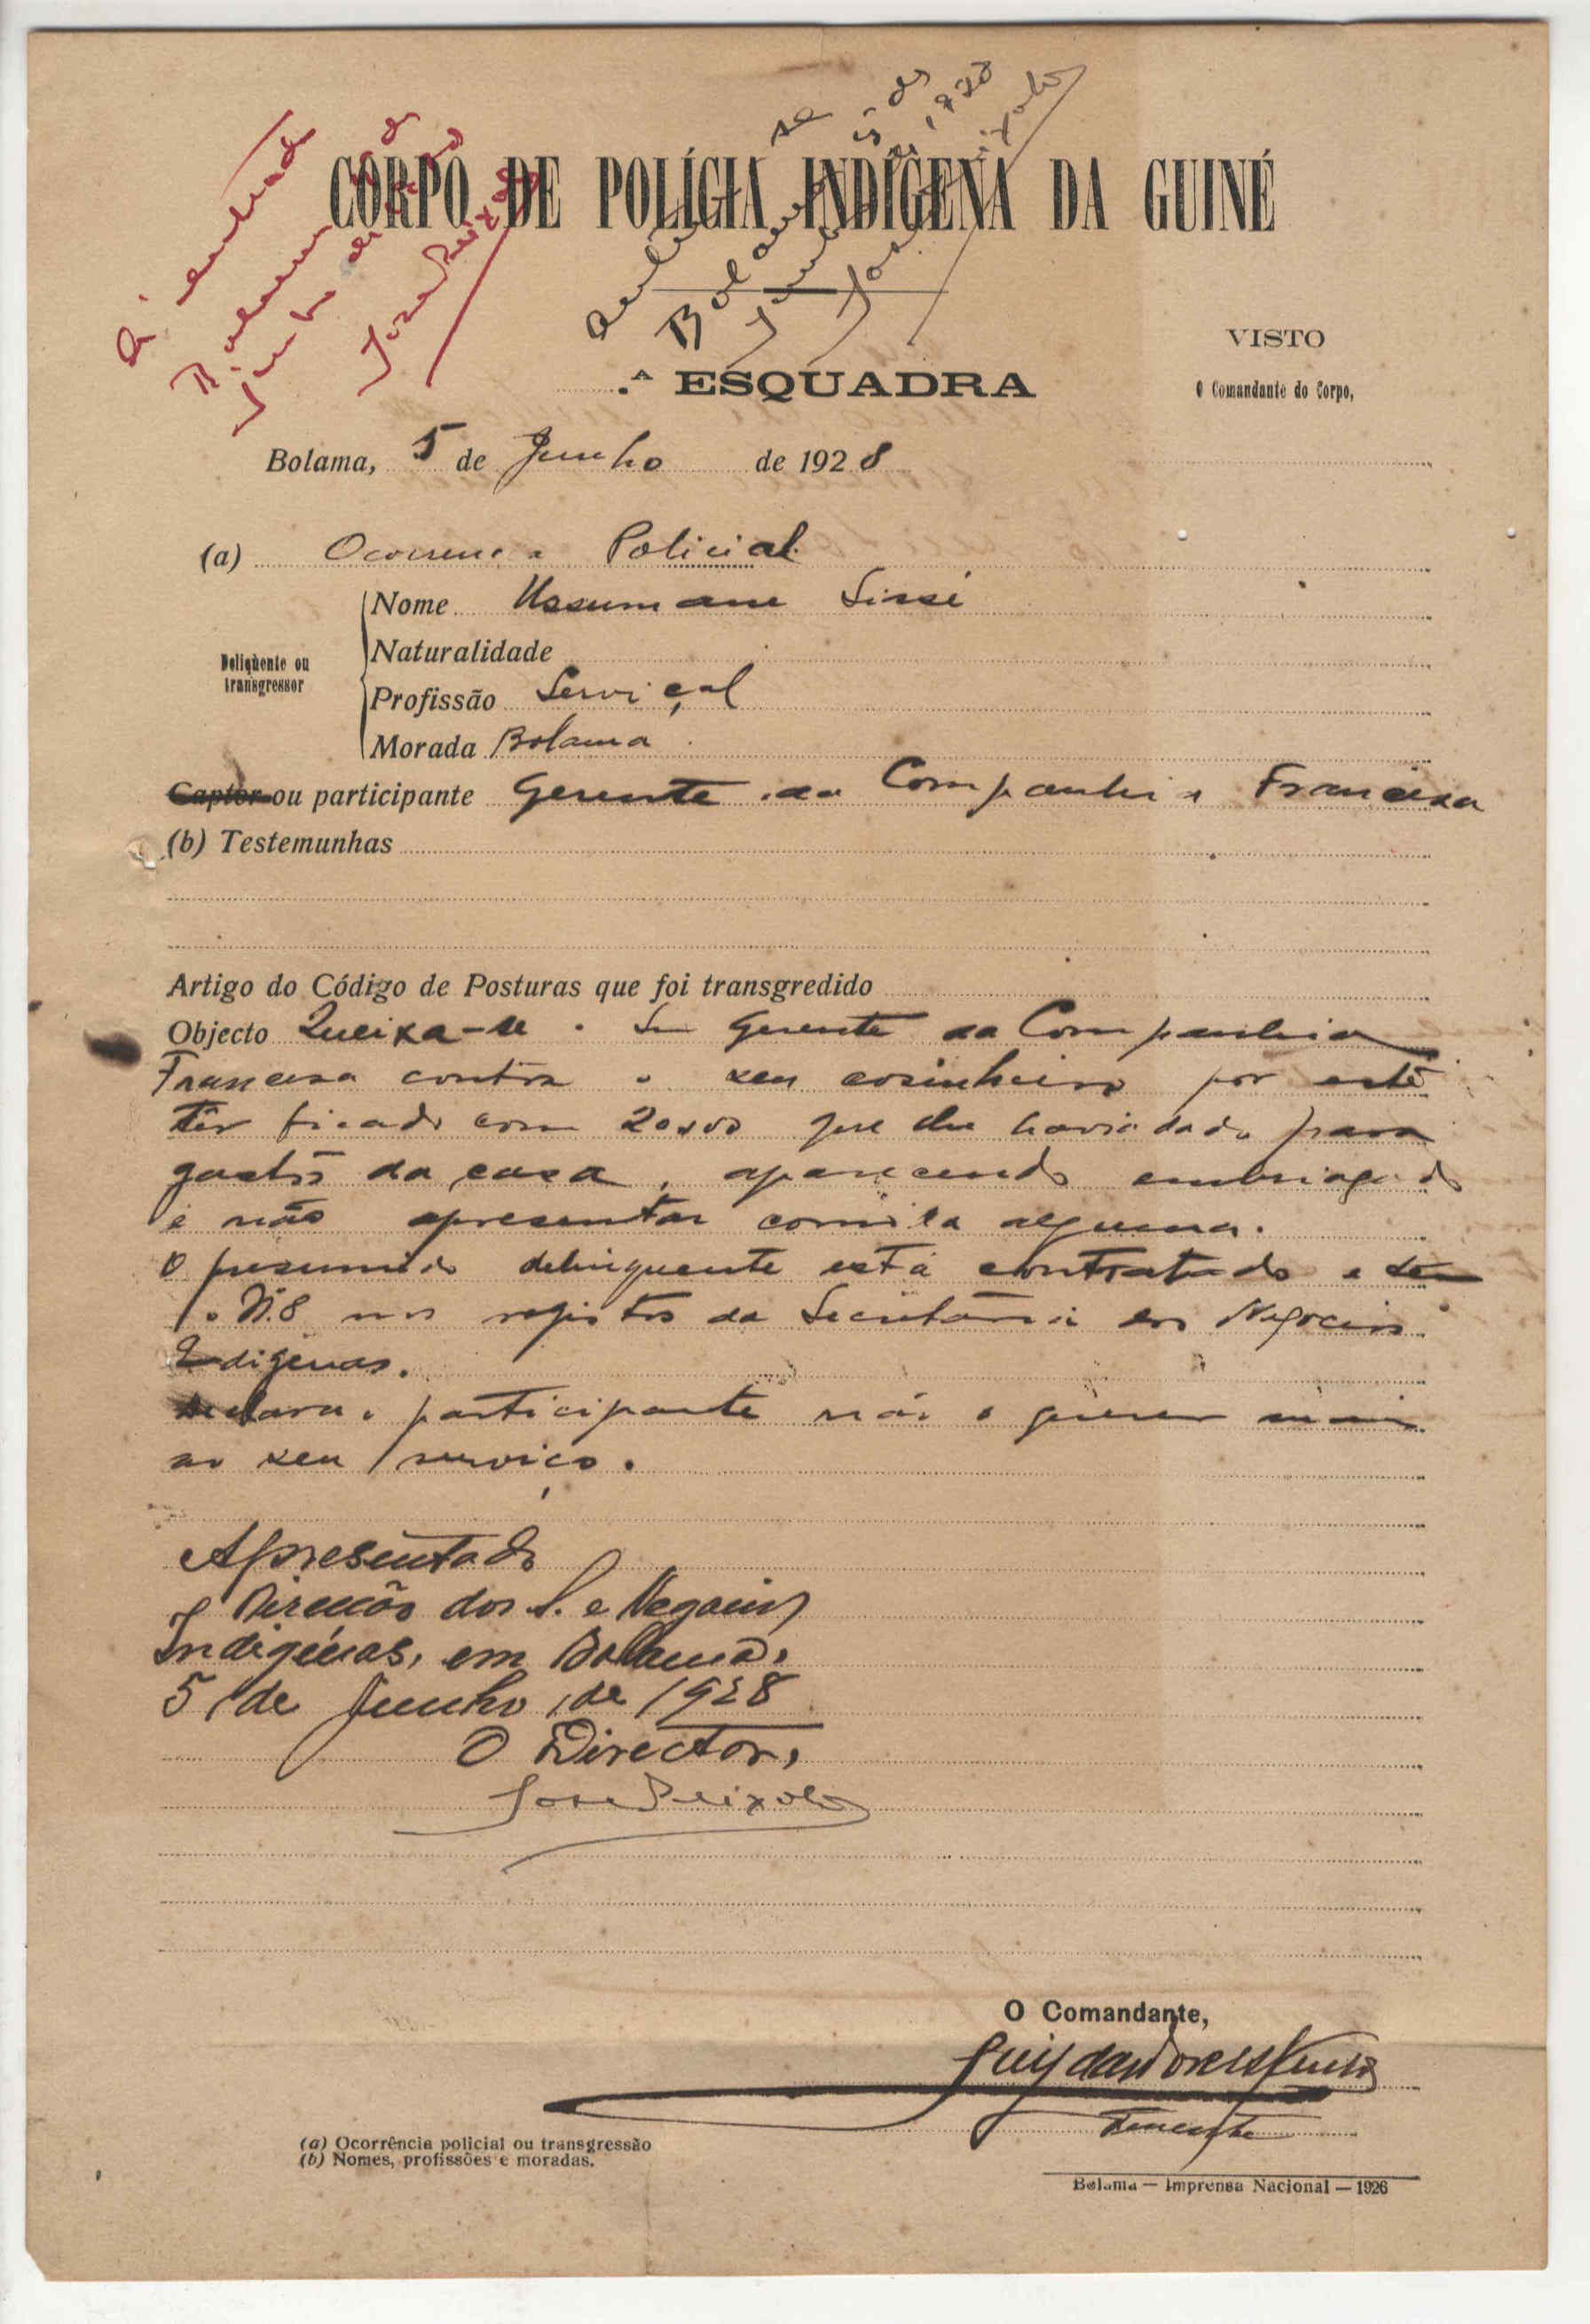 CORPO DE POLÍCIA INDÍGENA DA GUINÉ
José Peixoto
.ª ESQUADRA
VISTO
O Comandante do Corpo,
Bolama, 5 de Junho de 1928
(a) Ocorrencia Policial
Deliqùente ou transgressor
Nome Ussumane Sissé
Naturalidade
Profissão Serviçal
Morada Bolama
Captor ou participante Gerente da Companhia Francesa
(b) Testemunhas
Artigo do Código de Posturas que foi transgredido
Objecto Queixa-se o Sr Gerente da Companhia
Francesa contra o seu cosinheiro por este
têr ficado com 20$00 que lhe havia dado para
gastos da casa, aparecendo embriagado
e não apresentar comida alguma.
O presumido delinquente está contratado e tem
o N.8 nos registos da Secretaria dos Negocios
Indigenas.
Declara o participante não o querer mais
ao seu serviço.
Apresentado
Direcção dos S. e Negocios
Indigénas, em Bolama,
5 de Junho de 1928
O Director,
José Peixoto
O Comandante,
Tenente
(a) Ocorrência policial ou transgressão
(b) Nomes, profissões e moradas.
Bolama — Imprensa Nacional — 1926